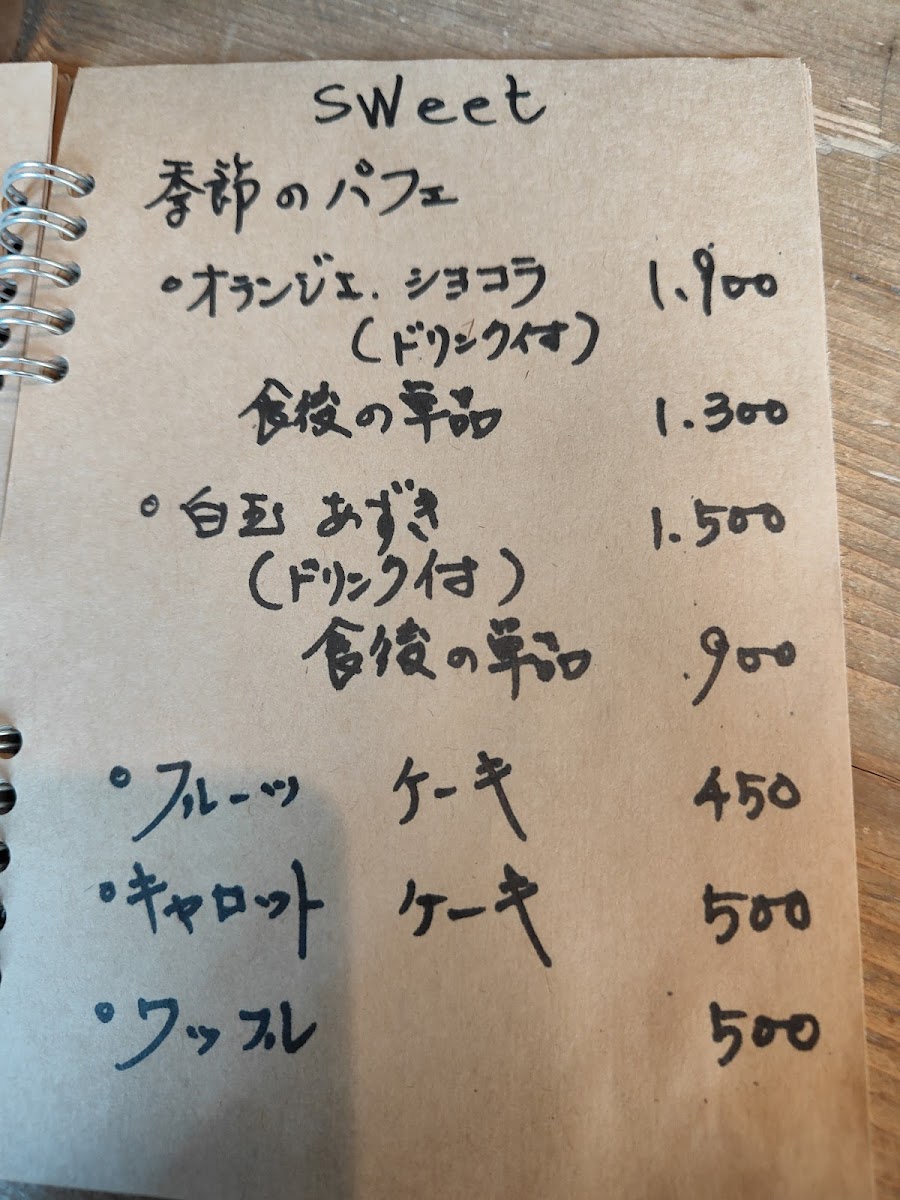 sweet
季節のパフェ
・オランジェ.ショコラ 1.900
(ドリンク付)
食後の単品 1.300
・白玉 あずき 1.500
(ドリンク付)
食後の単品 .900
・フルーツ ケーキ 450
・キャロット ケーキ 500
・ワッフル 500